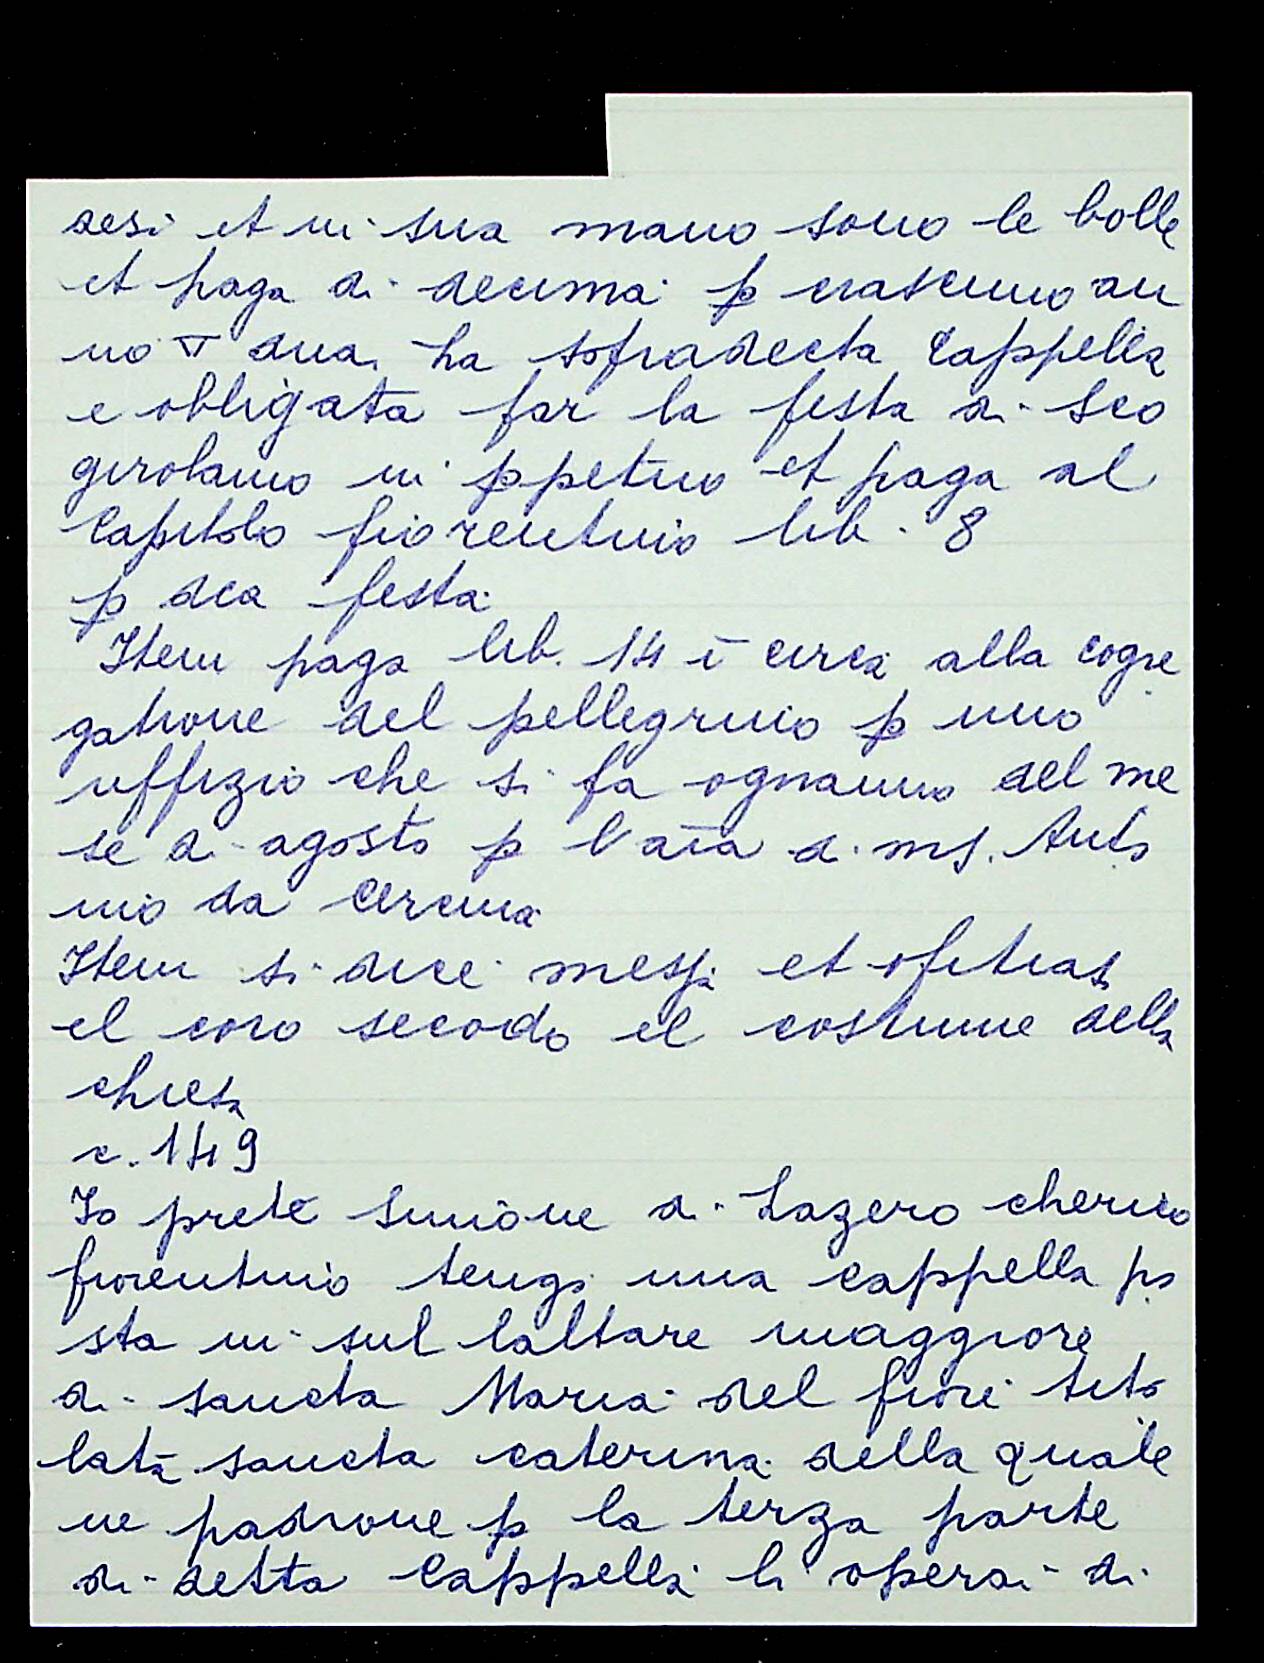 desi et in sua mano sono le bolle
et paga di decima ꝑ ciascuno an
no ▽ dua. ha sopradecta Cappella
e obligata far la festa di sco
girolamo in ꝑpetuo et paga al
Capitolo fiorentino lib. 8
ꝑ dca festa
Item paga lib. 14 ī circa alla cogre
gatione del pellegrino ꝑ uno
uffizio che si fa ognanno del me
se di agosto ꝑ l aīa di ms. Anto
nio da
Item si dice messa et
el coro secodo el costume della
chiesa
c. 149
Io prete Simone di Lazero cherico
fiorentino tengo una cappella po
sta in sul laltare maggiore
di sancta Maria del fiore tito
lata sancta caterina della quale
ne padrone ꝑ la terza parte
di detta Cappella li operai di